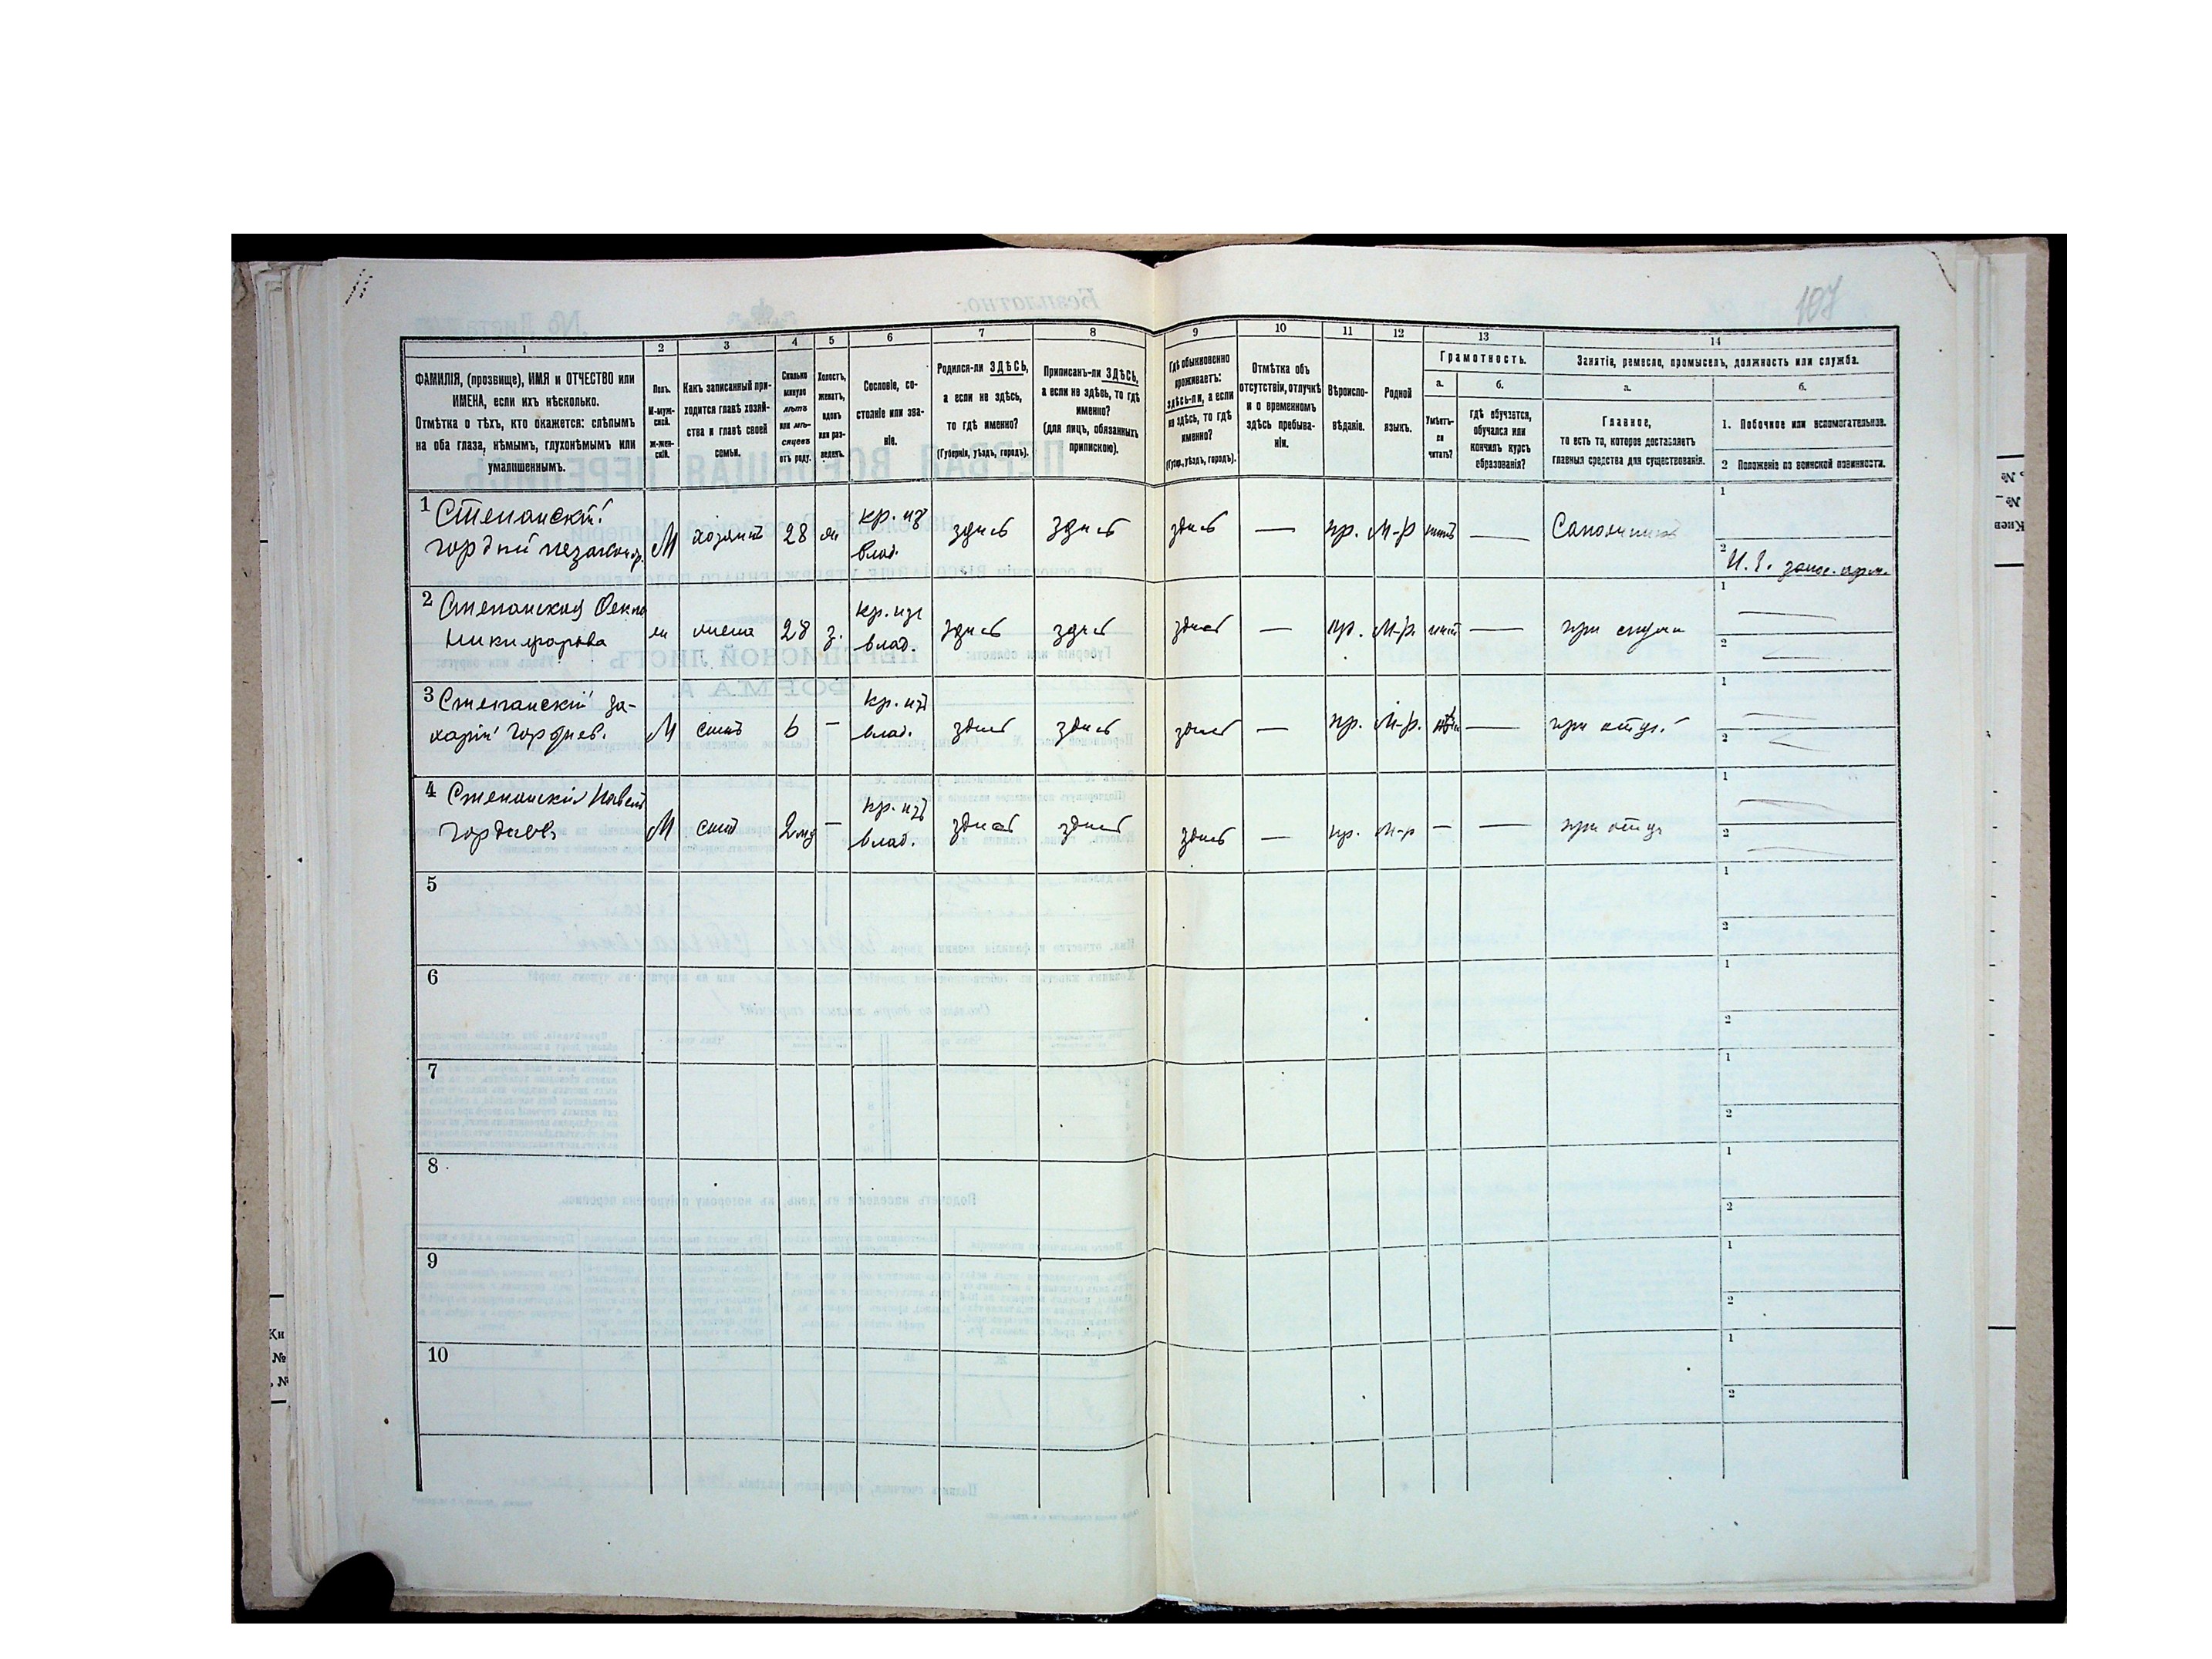 107
1 2 3 4 5 6 7 8 9 10 11 12 13 14
ФАМИЛІЯ, (прозвище), ИМЯ и ОТЧЕСТВО или
ИМЕНА, если ихъ нѣсколько.
Отмѣтка о тѣхъ, кто окажется: слѣпымъ
на оба глаза, нѣмымъ, глухонѣмымъ или
умалишеннымъ.
Полъ.
М-муж-
ской.
ж-жен-
скій.
Какъ записанный при-
ходится главѣ хозяй-
ства и главѣ своей
семьи.
Сколько
минуло
лѣтъ
или мѣ-
сяцевъ
отъ роду.
Холостъ,
женатъ,
вдовъ
или раз-
веденъ.
Сословіе, со-
стояніе или зва-
ніе.
Родился-ли ЗДѢСЬ,
а если не здѣсь,
то гдѣ именно?
(Губернія, уѣздъ, городъ).
Приписанъ-ли ЗДѢСЬ,
а если не здѣсь, то гдѣ
именно?
(для лицъ, обязанныхъ
припискою).
Гдѣ обыкновенно
проживаетъ:
здѣсь-ли, а если
не здѣсь, то гдѣ
именно?
(Губер., уѣздъ, городъ).
Отмѣтка объ
отсутствіи, отлучкѣ
и о временномъ
здѣсь пребыва-
ніи.
Вѣроиспо-
вѣданіе.
Родной
языкъ.
Грамотность.
а.
Умѣетъ-
ли
читать?
б.
гдѣ обучается,
обучался или
кончилъ курсъ
образованія?
Занятія, ремесло, промыселъ, должность или служба.
а.
Главное,
то есть то, которое доставляетъ
главныя средства для существованія.
б.
1. Побочное или вспомогательное.
2 Положеніе по воинской повинности.
1 Степанскій
Гордѣй
М хозяинъ 28 кр. изъ влад. здѣсь здѣсь здѣсь — пр. М-р нѣтъ — 1
2
2 Степанская
Никифорова
жена 28 з. кр. изъ влад. здѣсь здѣсь здѣсь — пр. М-р. нѣтъ — при мужѣ 1 —
2 —
3 Степанскій За-
харій Гордѣев.
М сынъ 6 — кр. изъ влад. здѣсь здѣсь здѣсь — пр. М-р. — при отцѣ 1 —
2 —
4 Степанскій Павелъ
Гордѣевъ
М сынъ — кр. изъ влад. здѣсь здѣсь здѣсь — пр. М-р — — при отцѣ 1 —
2 —
5 1
2
6 1
2
7 1
2
8 1
2
9 1
2
10 1
2